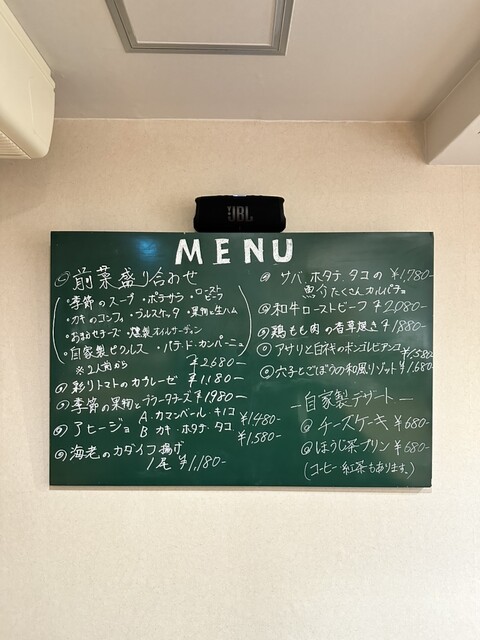 JBL
MENU
前菜盛り合わせ
・季節のスープ・ポテサラ・ローストビーフ
・カキのコンフィ・ブルスケッタ・果物と生ハム
・おまかせチーズ・燻製オイルサーディン
・自家製ピクルス・パテ・ド・カンパーニュ
※2人前から ¥2680-
彩りトマトのカプレーゼ ¥1,180-
季節の果物とブラータチーズ ¥1980-
アヒージョ A カマンベール・キノコ ¥1,480-
B カキ・ホタテ・タコ ¥1,580-
海老のカダイフ揚げ
1尾 ¥1,180-
サバ、ホタテ、タコの ¥1,780-
魚介たくさんカルパッチョ
和牛ローストビーフ ¥2,080-
鶏もも肉の香草焼き ¥1,880-
アサリと白ネギのボンゴレビアンコ ¥1,580-
穴子とごぼうの和風リゾット ¥1,680-
―自家製デザート―
@チーズケーキ ¥680-
@ほうじ茶プリン ¥680-
(コーヒー・紅茶もあります。)